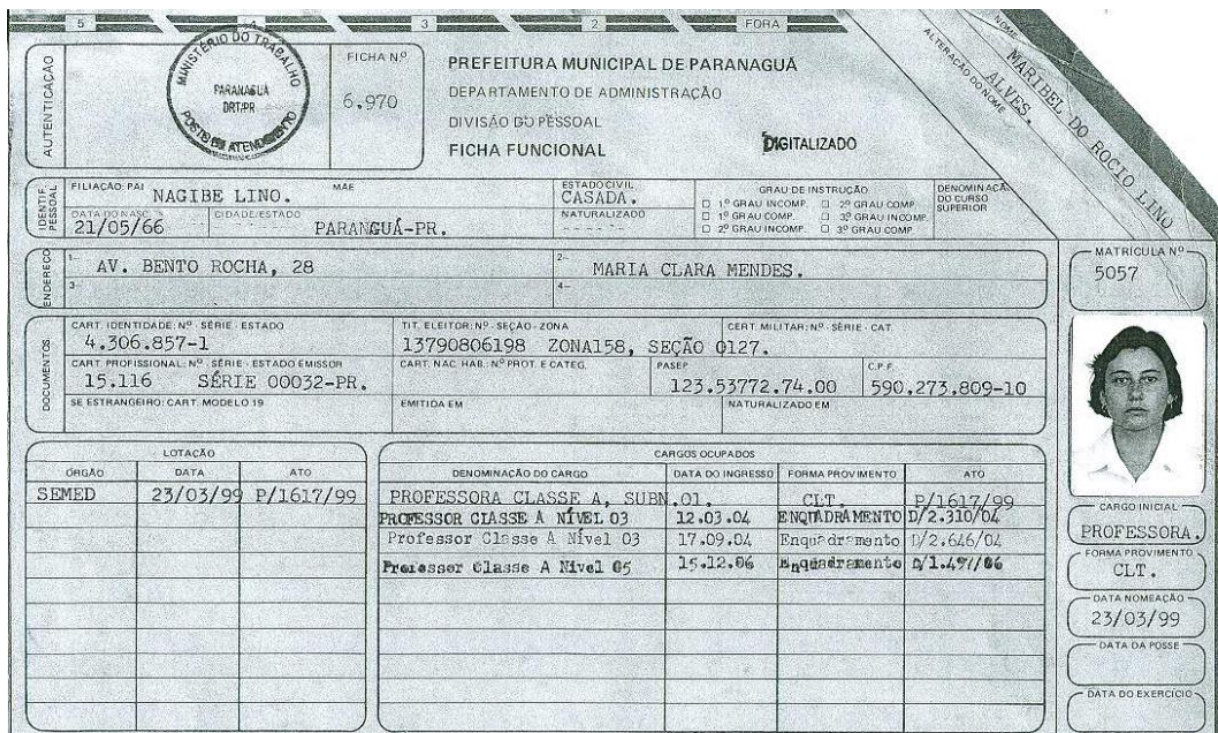 5 4 3 2 FORA
AUTENTICAÇÃO
MINISTÉRIO DO TRABALHO
PARANAGUÁ
DRT/PR
POSTO DE ATENDIMENTO
FICHA N.º
6.970
PREFEITURA MUNICIPAL DE PARANAGUÁ
DEPARTAMENTO DE ADMINISTRAÇÃO
DIVISÃO DO PESSOAL
FICHA FUNCIONAL
DIGITALIZADO
NOME
MARIBEL DO ROCIO LINO
ALVES.
ALTERAÇÃO DO NOME
IDENTIF. PESSOAL
FILIAÇÃO: PAI MÃE
NAGIBE LINO.
ESTADO CIVIL
CASADA.
GRAU DE INSTRUÇÃO
☐ 1º GRAU INCOMP. ☐ 2º GRAU COMP.
☐ 1º GRAU COMP. ☐ 3º GRAU INCOMP.
☐ 2º GRAU INCOMP. ☐ 3º GRAU COMP.
DENOMINAÇÃO
DO CURSO
SUPERIOR
DATA DO NASC. CIDADE/ESTADO NATURALIZADO
21/05/66 PARANGUÁ-PR.
ENDEREÇO
1- AV. BENTO ROCHA, 28 2- MARIA CLARA MENDES.
3- 4-
MATRÍCULA Nº
5057
DOCUMENTOS
CART. IDENTIDADE: Nº - SÉRIE - ESTADO TIT. ELEITOR: Nº - SEÇÃO - ZONA CERT. MILITAR: Nº - SÉRIE - CAT.
4.306.857-1 13790806198 ZONA158, SEÇÃO 0127.
CART. PROFISSIONAL: Nº SÉRIE - ESTADO EMISSOR CART. NAC. HAB.: Nº PROT. E CATEG. PASEP C.P.F.
15.116 SÉRIE 00032-PR. 123.53772.74.00 590.273.809-10
SE ESTRANGEIRO: CART. MODELO 19 EMITIDA EM NATURALIZADO EM
LOTAÇÃO
ÓRGÃO DATA ATO
SEMED 23/03/99 P/1617/99
CARGOS OCUPADOS
DENOMINAÇÃO DO CARGO DATA DO INGRESSO FORMA PROVIMENTO ATO
PROFESSORA CLASSE A, SUBN.01. CLT. P/1617/99
PROFESSOR CLASSE A NÍVEL 03 12.03.04 ENQUADRAMENTO D/2.310/04
Professor Classe A Nível 03 17.09.04 Enquadramento D/2.646/04
Professor Classe A Nível 05 15.12.06 Enquadramento
CARGO INICIAL
PROFESSORA.
FORMA PROVIMENTO
CLT.
DATA NOMEAÇÃO
23/03/99
DATA DA POSSE
DATA DO EXERCÍCIO